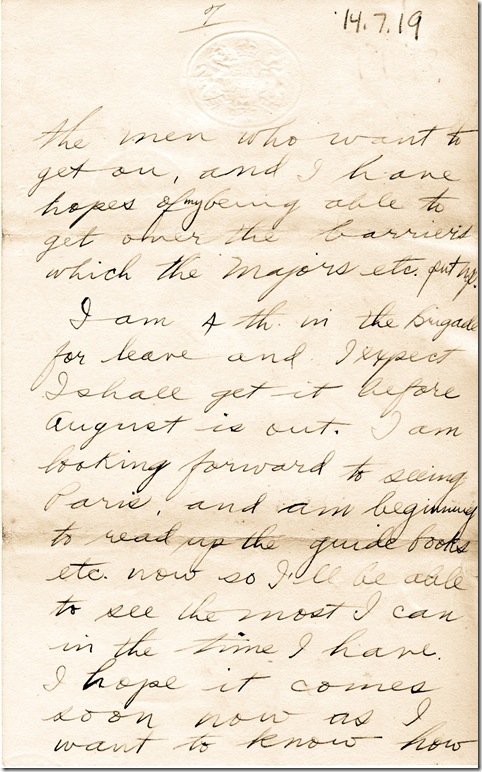 7
14.7.19
the men who want to
get on, and I have
hopes of my being able to
get over the barriers
which the Majors etc. put up.
I am 4th. in the Brigade
for leave and I expect
I shall get it before
August is out. I am
looking forward to seeing
Paris, and am beginning
to read up the guide books
etc. now so I'll be able
to see the most I can
in the time I have.
I hope it comes
soon now as I
want to know how